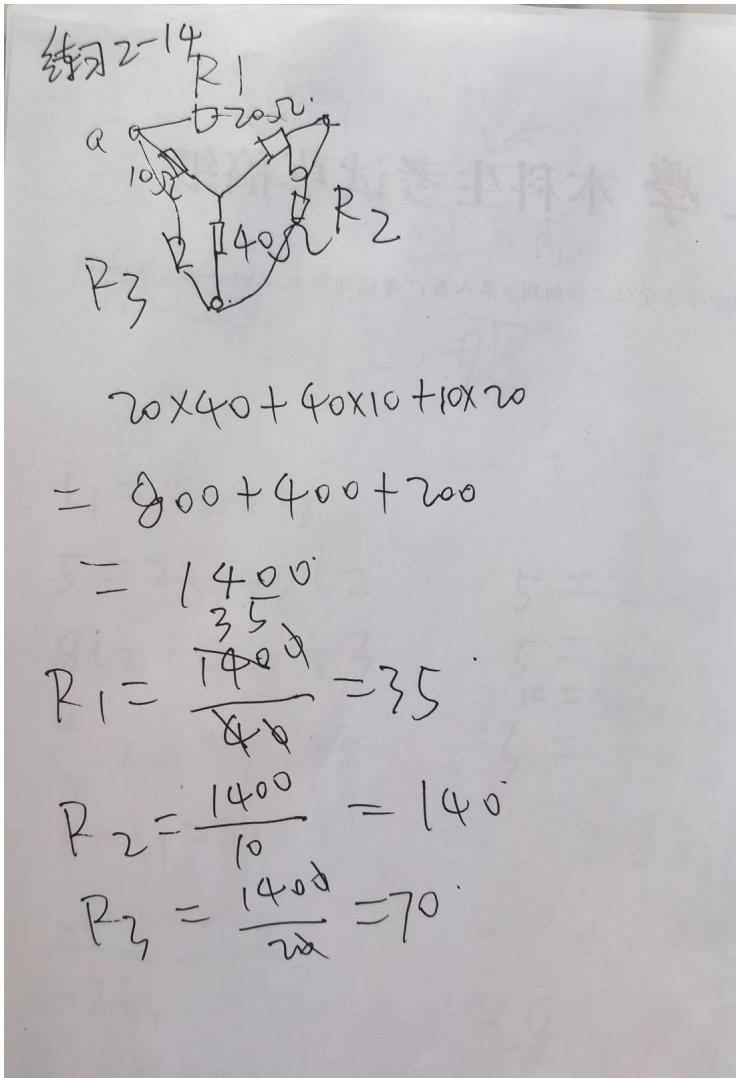 练习2-14
R1
a
20Ω
10Ω
40Ω
R2
R3
20×40+40×10+10×20
= 800+400+200
= 1400
35
R1 = 1400/40 =35
R2 = 1400/10 = 140
R3 = 1400/20 =70